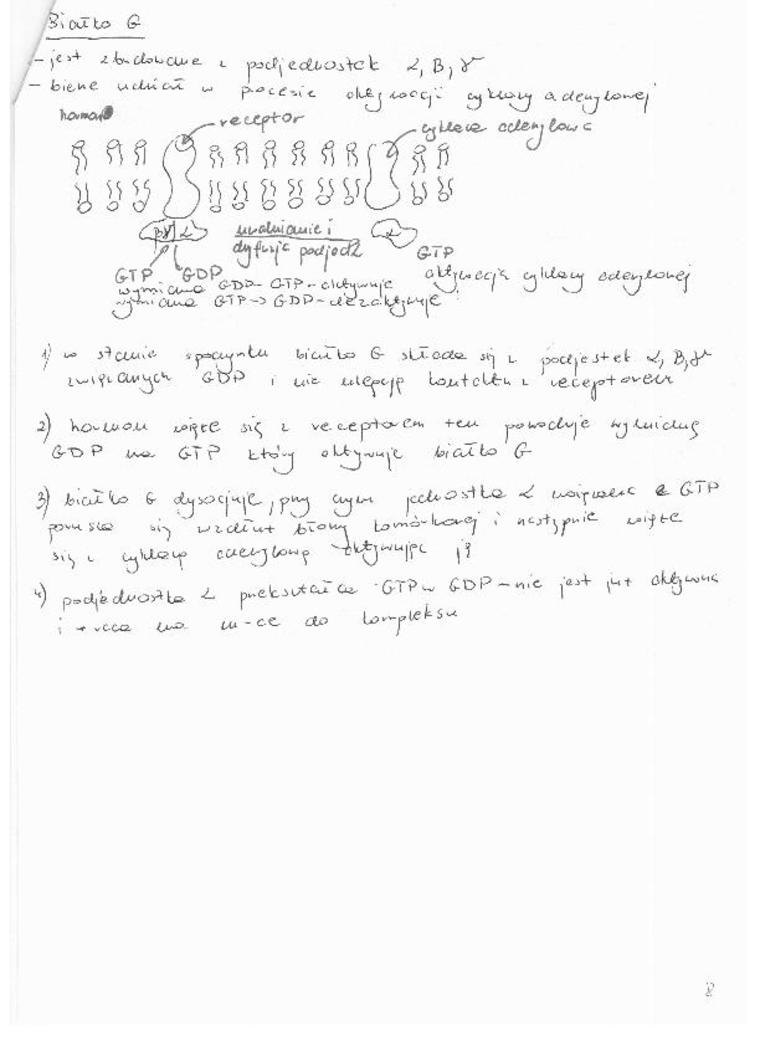 Białko G
- jest zbudowane z podjednostek α, β, γ
- bierze udział w procesie aktywacji cyklazy adenylowej
hormon
receptor
cyklaza adenylowa
βγ α
uwalnianie i
dyfuzja podjedź
α
GTP GDP
GTP
aktywacja cyklazy adenylowej
wymiana GDP - GTP - aktywuje
wymiana GTP → GDP - dezaktywuje
1) w stanie spoczynku białko G składa się z podjestek α, β, γ
związanych GDP i nie ulegają kontaktu z receptorem
2) hormon wiąże się z receptorem ten powoduje wymianę
GDP na GTP który aktywuje białko G
3) białko G dysocjuje, przy czym jednostka α związana z GTP
porusza się wzdłuż błony komórkowej i następnie wiąże
się z cyklazą adenylową aktywując ją
4) podjednostka α przekształca GTP w GDP - nie jest już aktywna
i wraca na m-ce do kompleksu
8